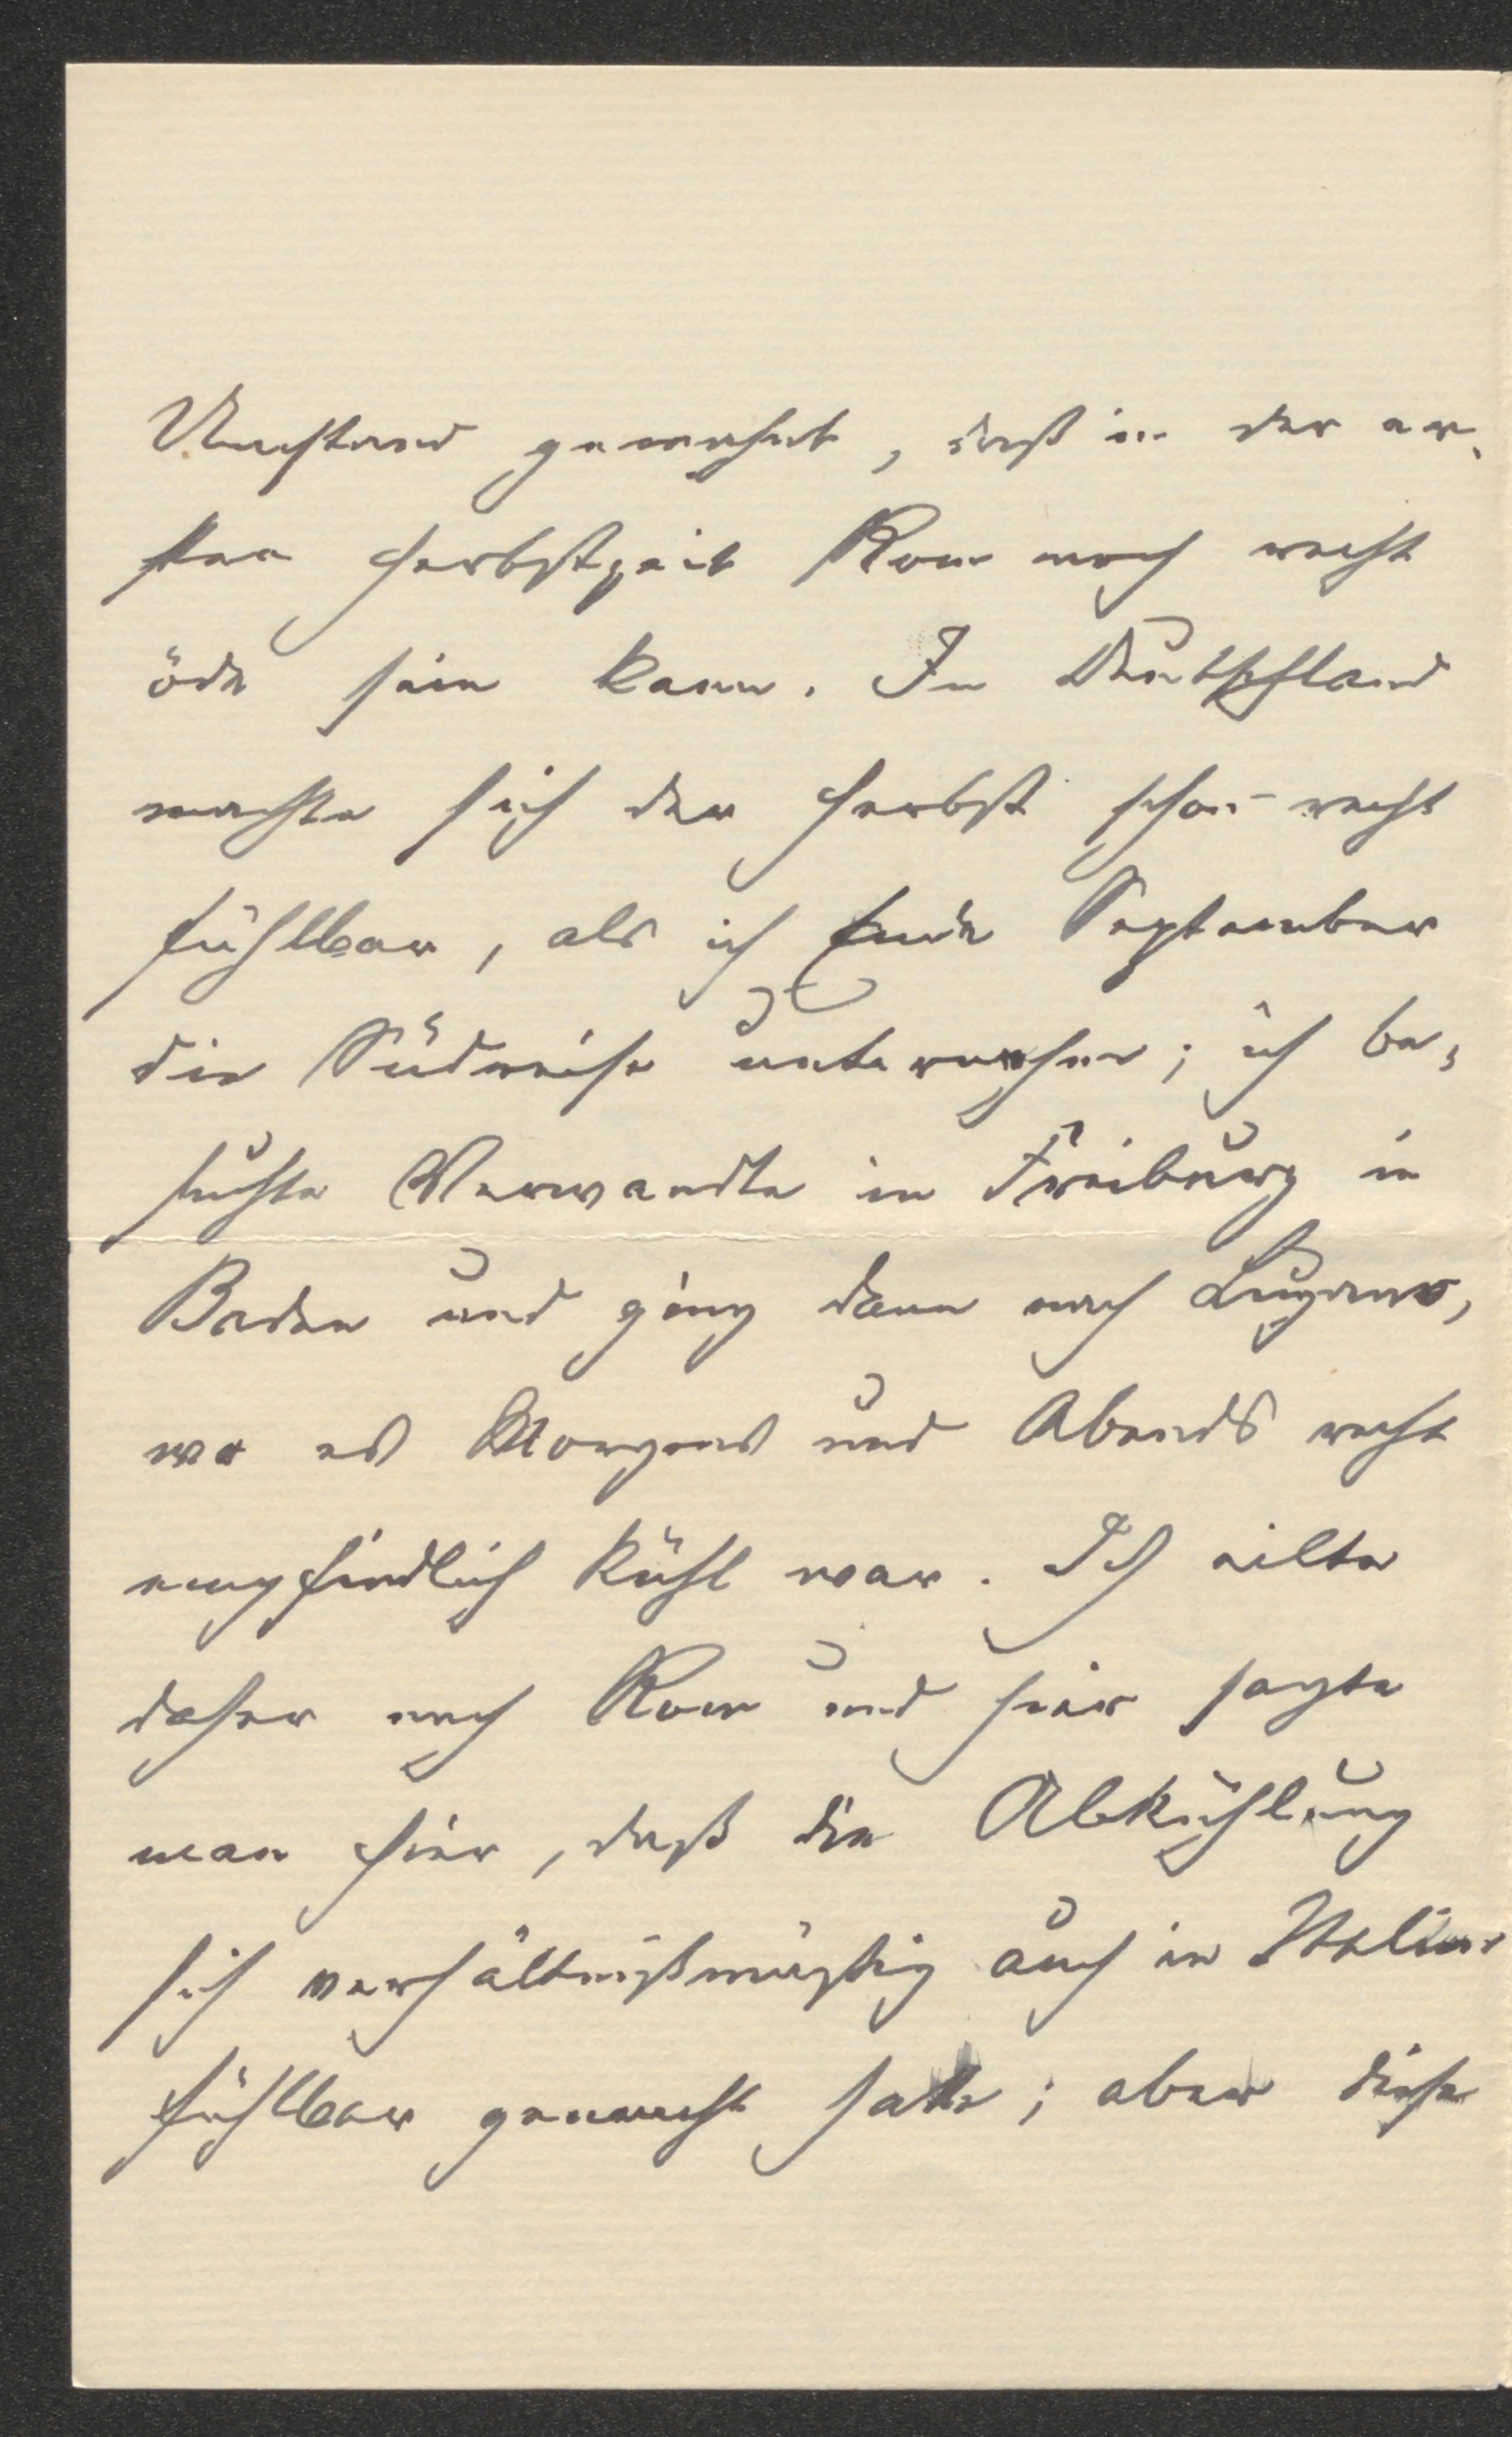 Umstand gemahnt, daß in der er-
sten Herbstzeit Rom noch recht
öde sein kann. In Deutschland
machte sich der Herbst schon recht
fühlbar, als ich Ende September
die Südreise unternahm; ich be-
suchte Verwandte in Freiburg in
Baden und ging dann nach Lugano,
wo es Morgens und Abends recht
empfindlich kühl war. Ich eilte
daher nach Rom und hier sagte
man hier, daß die Abkühlung
sich verhältnißmäßig auch in Italien
fühlbar gemacht hatte; aber diese